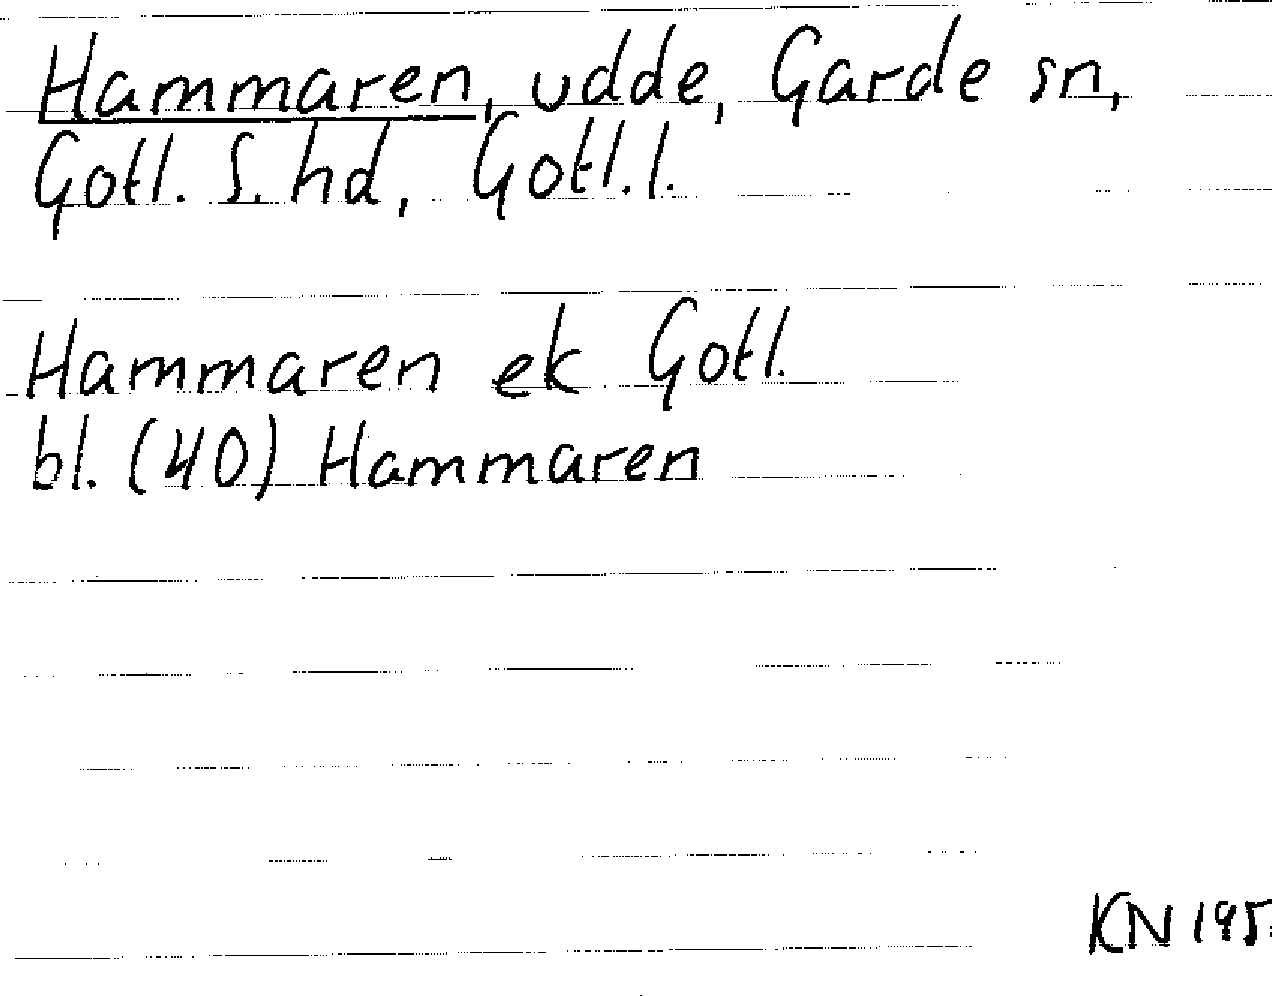 Hammaren, udde, Garde sn,
Gotl. S. hd, Gotl. l.
Hammaren ek Gotl.
bl. (40) Hammaren
KN 195